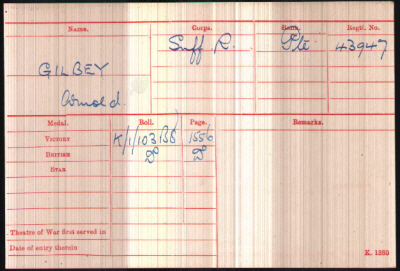 Name. Corps. Rank. Regtl. No.
GILBEY Suff R. Pte 43947
Arnold.
Medal. Roll. Page. Remarks.
VICTORY K/1/103B5 1556
BRITISH Do Do
STAR
Theatre of War first served in
Date of entry therein
K. 1380